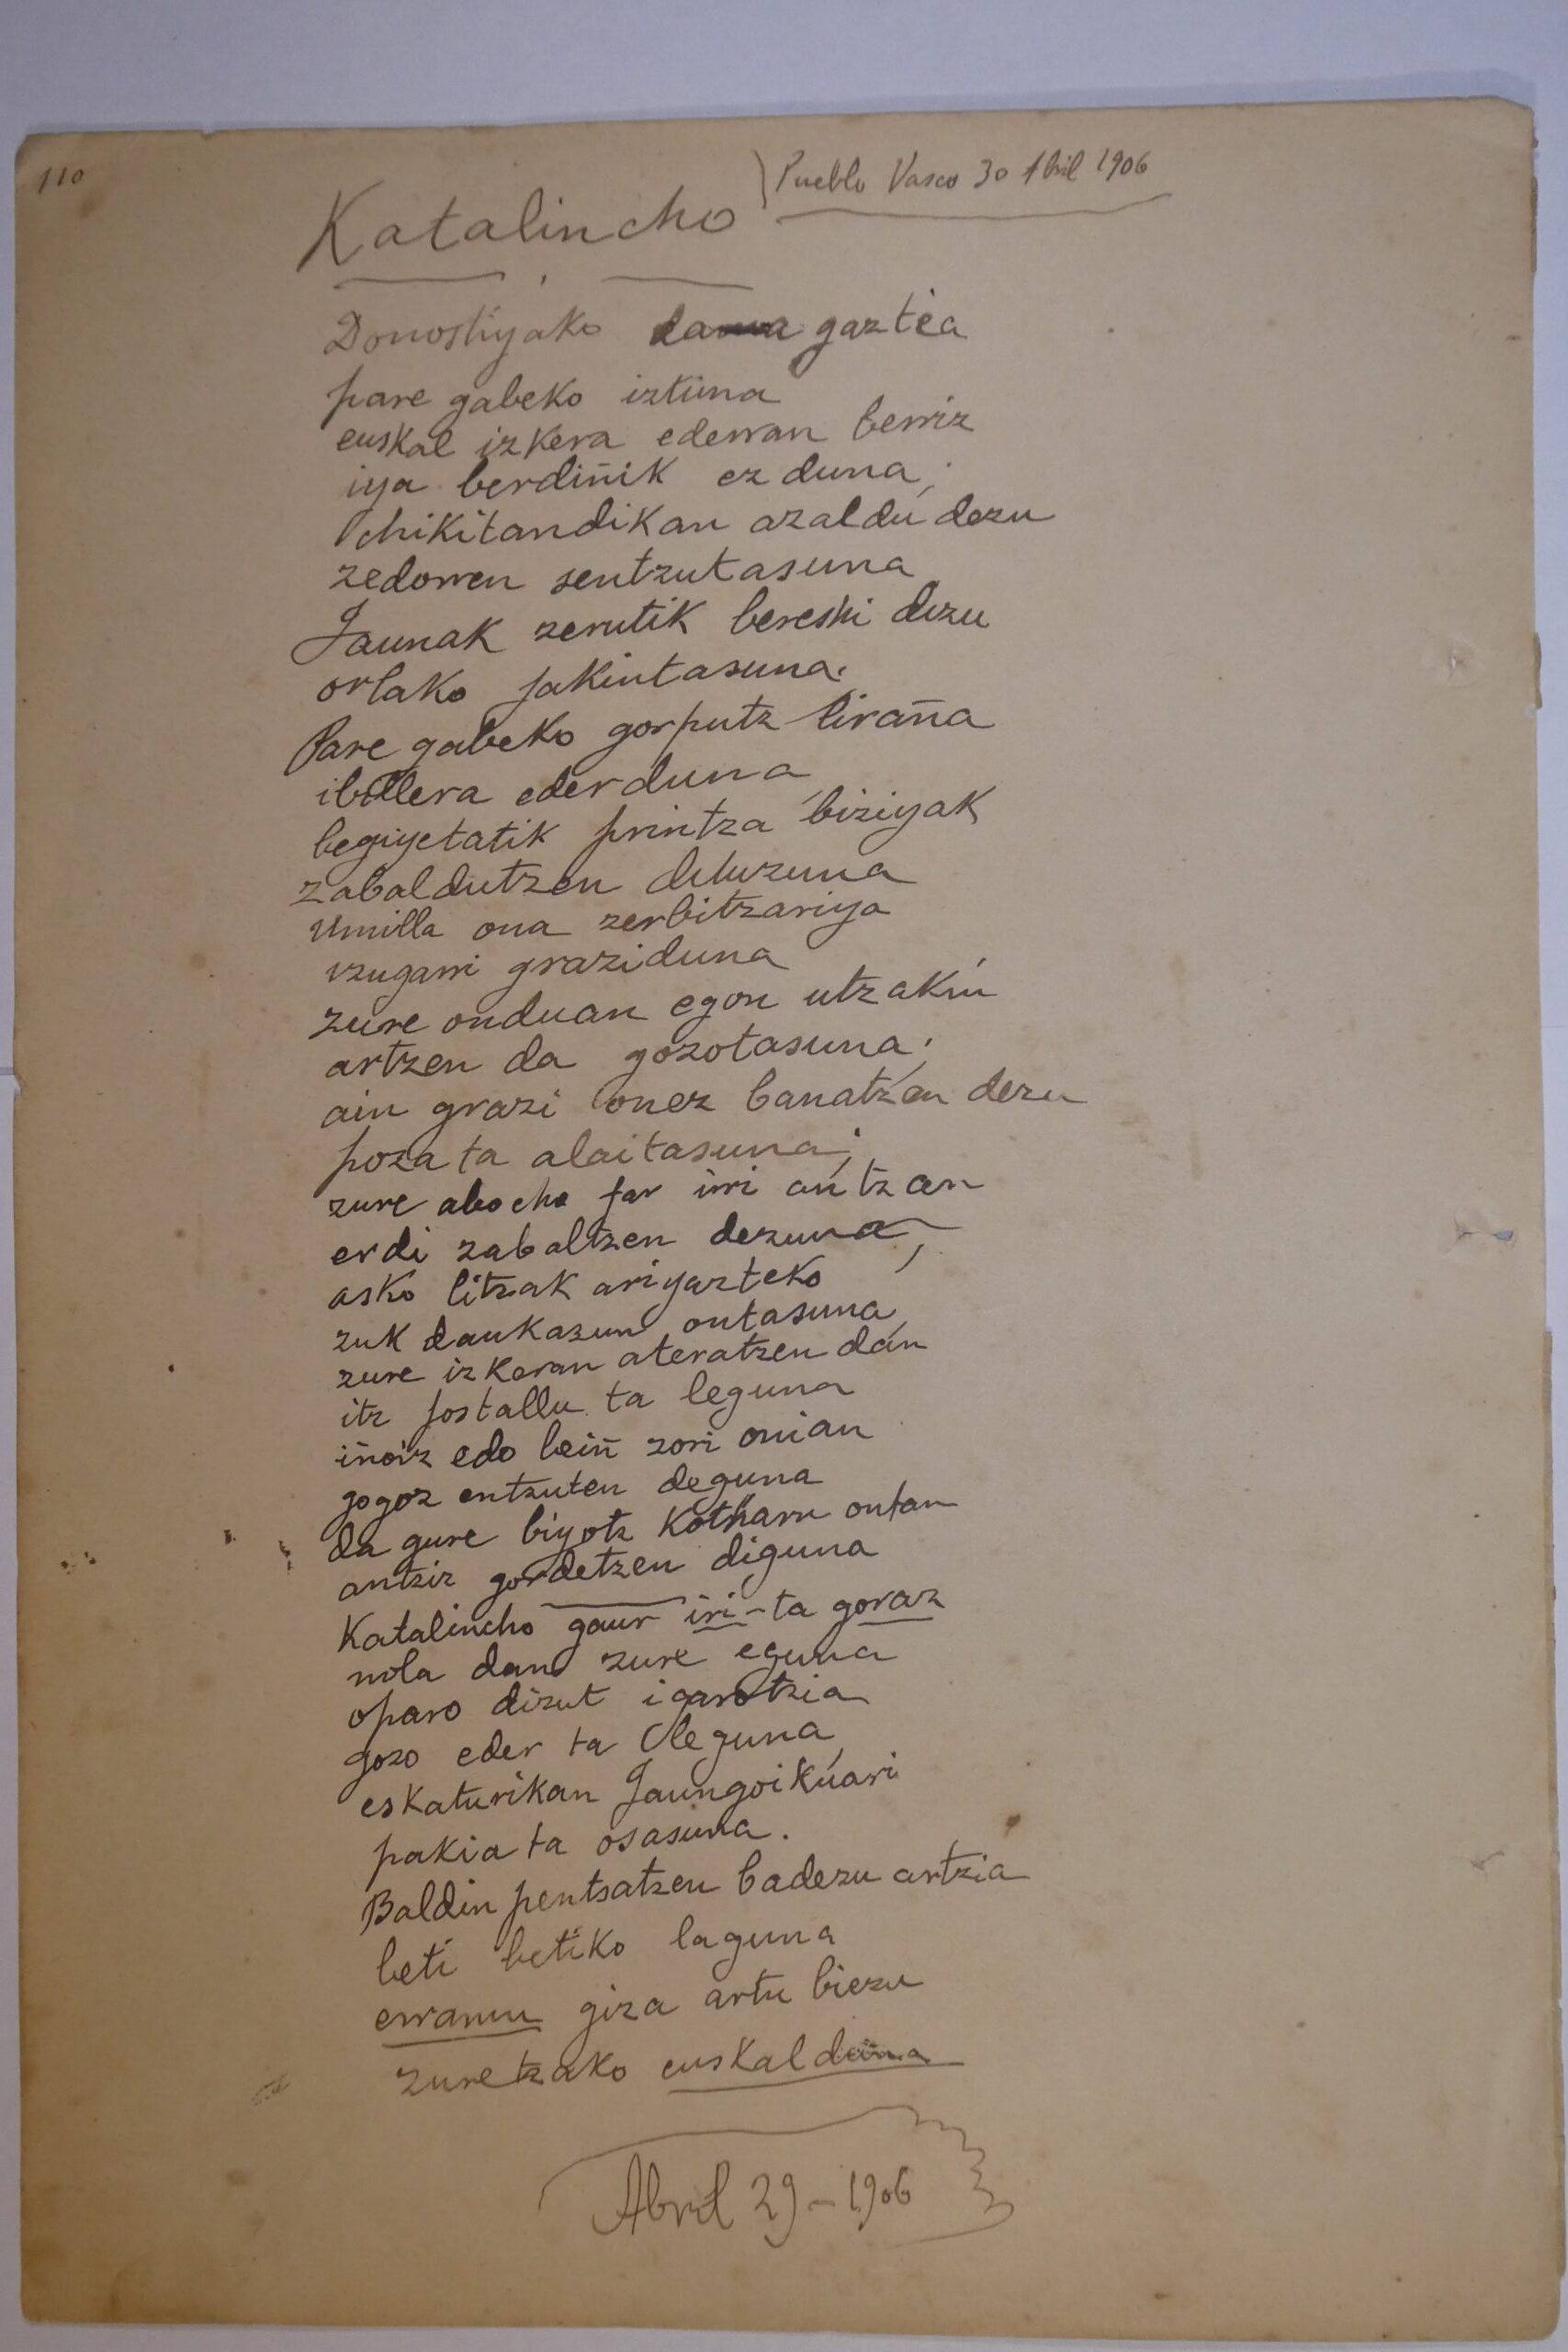 110
Pueblo Vasco 30 Abril 1906
Katalincho
Donostiyako dama gaztea
pare gabeko iztuna
euskal izkera ederran berriz
iya berdiñik ez duna;
chikitandikan azaldu dezu
zedorren sentzutasuna
Jaunak zerutik bereshi dizu
orlako jakintasuna.
Pare gabeko gorputz liraña
ibillera ederduna
begiyetatik printza biziyak
zabaldutzen dituzuna
umilla ona zerbitzariya
izugarri graziduna
zure onduan egon utzakin
artzen da gozotasuna;
ain grazi onez banatzen dezu
poza ta alaitasuna;
zure abocho par irri antzan
erdi zabaltzen dezuna,
asko litzak ariyazteko
zuk daukazun ontasuna
zure izkeran ateratzen dan
itz jostallu ta leguna
iñoiz edo beiñ zori onian
gogoz entzuten deguna
da gure biyotz kotharu ontan
antziz gordetzen diguna
Katalincho gaur iri-ta goraz
nola dan zure eguna
oparo dizut igarotzia
gozo eder ta leguna
eskaturikan Jaungoikuari
pakia ta osasuna.
Baldin pentsatzen badezu artzia
beti betiko laguna
erramu giza artu biezu
zuretzako euskalduna
Abril 29-1906